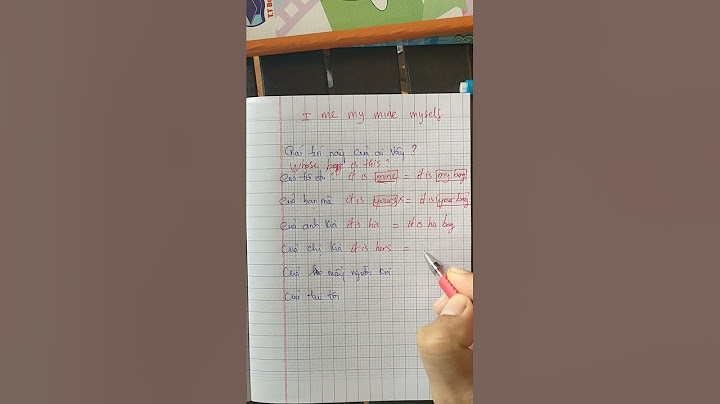 I me my mine myself
Cái túi này của ai vậy ?
Whose bag is this ?
Của tôi đó : it is mine = it is my bag
Của bạn mà it is yours = it is your bag
Của anh kia it is his = it is his bag
Của chị kia it is hers =
Của mấy người kia
Của tụi tôi